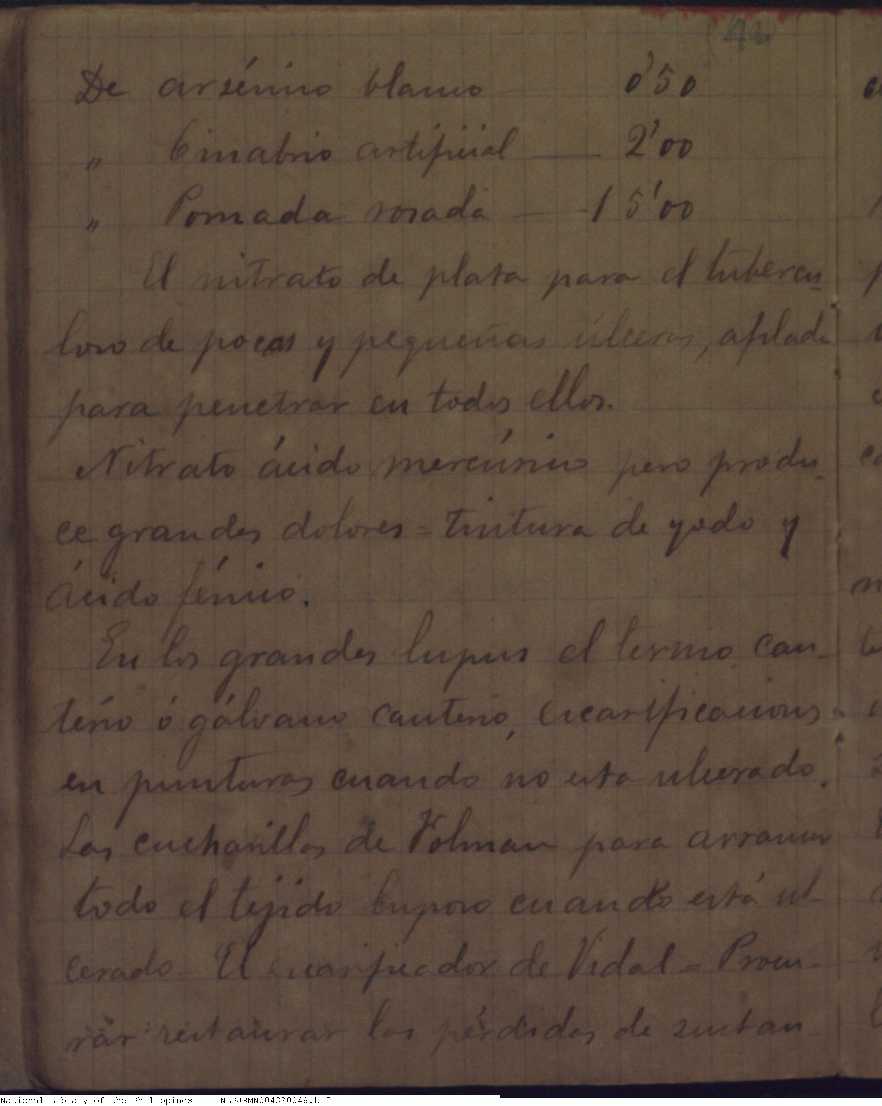 De arsénico blanco 0'50
" Cinabrio artificial — 2'00
" Pomada rosada — 15'00
El nitrato de plata para el tubercu-
loso de pocas y pequeñas úlceras, afilado
para penetrar en todos ellos.
Nitrato ácido mercúrico pero produ-
ce grandes dolores = Tintura de yodo y
Ácido fénico.
En los grandes lupus el termo cau-
terio ó gálvano cauterio,
en punturas cuando no esta ulcerado.
Las cucharillas de Volman para arrancar
todo el tejido luposo cuando está ul-
cerado. El escarificador de Vidal = Procu-
rar restaurar las pérdidas de sustan-
National Library of the Philippines